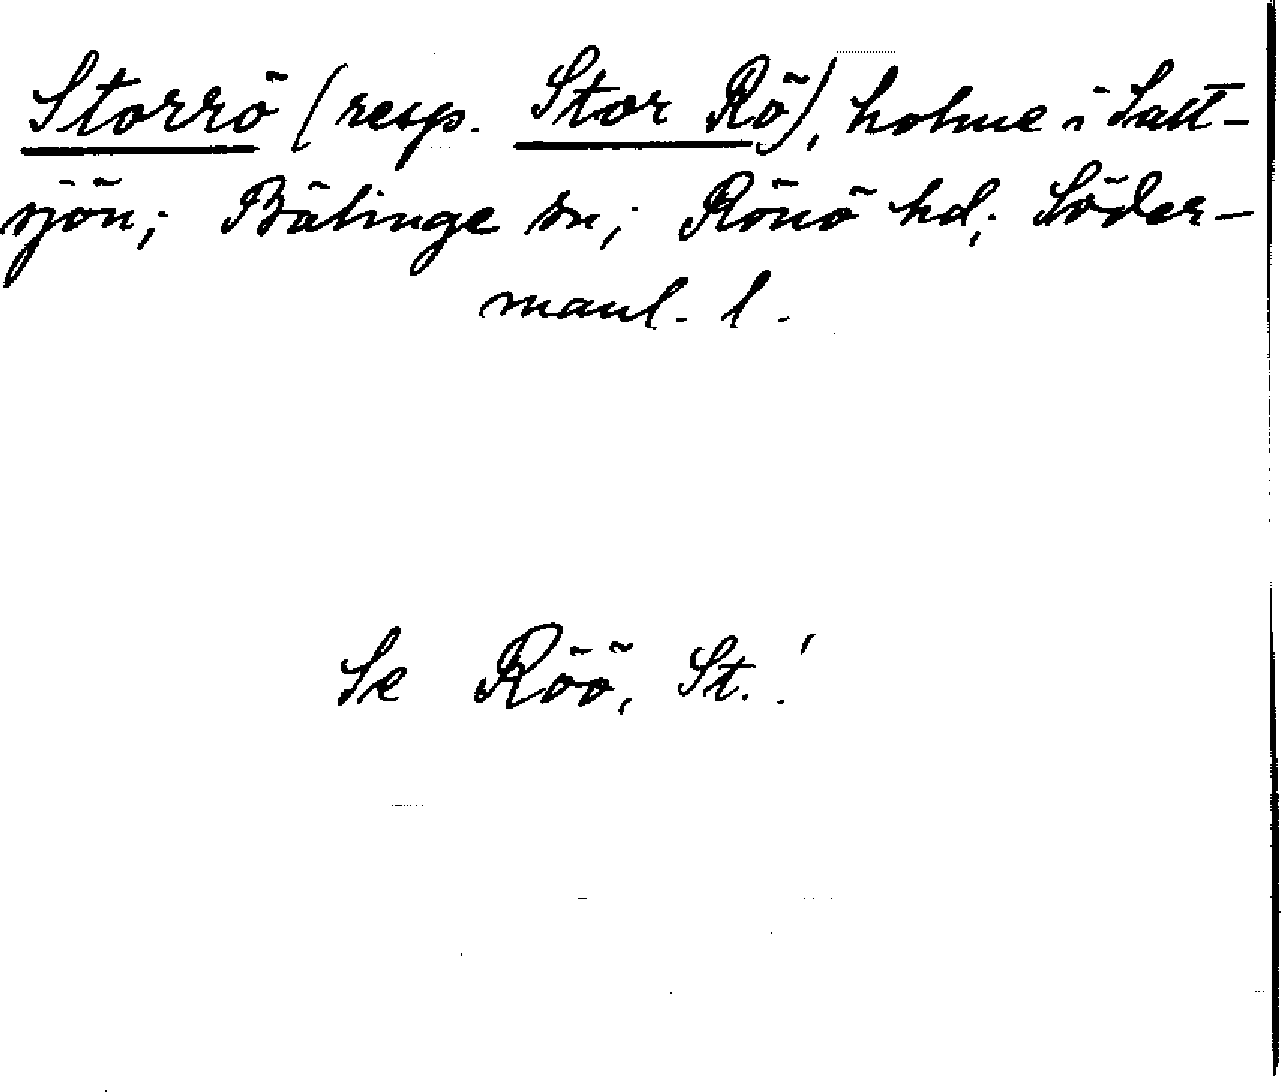 Storrö (resp. Stor Rö), holme i Salt-
sjön; Bälinge sn; Rönö hd; Söder-
manl. l.
Se Röö, St.!